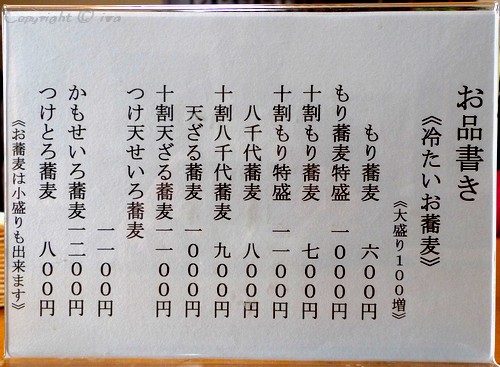 Copyright © iwa
お品書き
《冷たいお蕎麦》
《大盛り100増》
もり蕎麦 六00円
もり蕎麦特盛 一000円
十割もり蕎麦 七00円
十割もり特盛 一一00円
八千代蕎麦 八00円
十割八千代蕎麦 九00円
天ざる蕎麦 一000円
十割天ざる蕎麦一一00円
つけ天せいろ蕎麦
一一00円
かもせいろ蕎麦一二00円
つけとろ蕎麦 八00円
《お蕎麦は小盛りも出来ます》